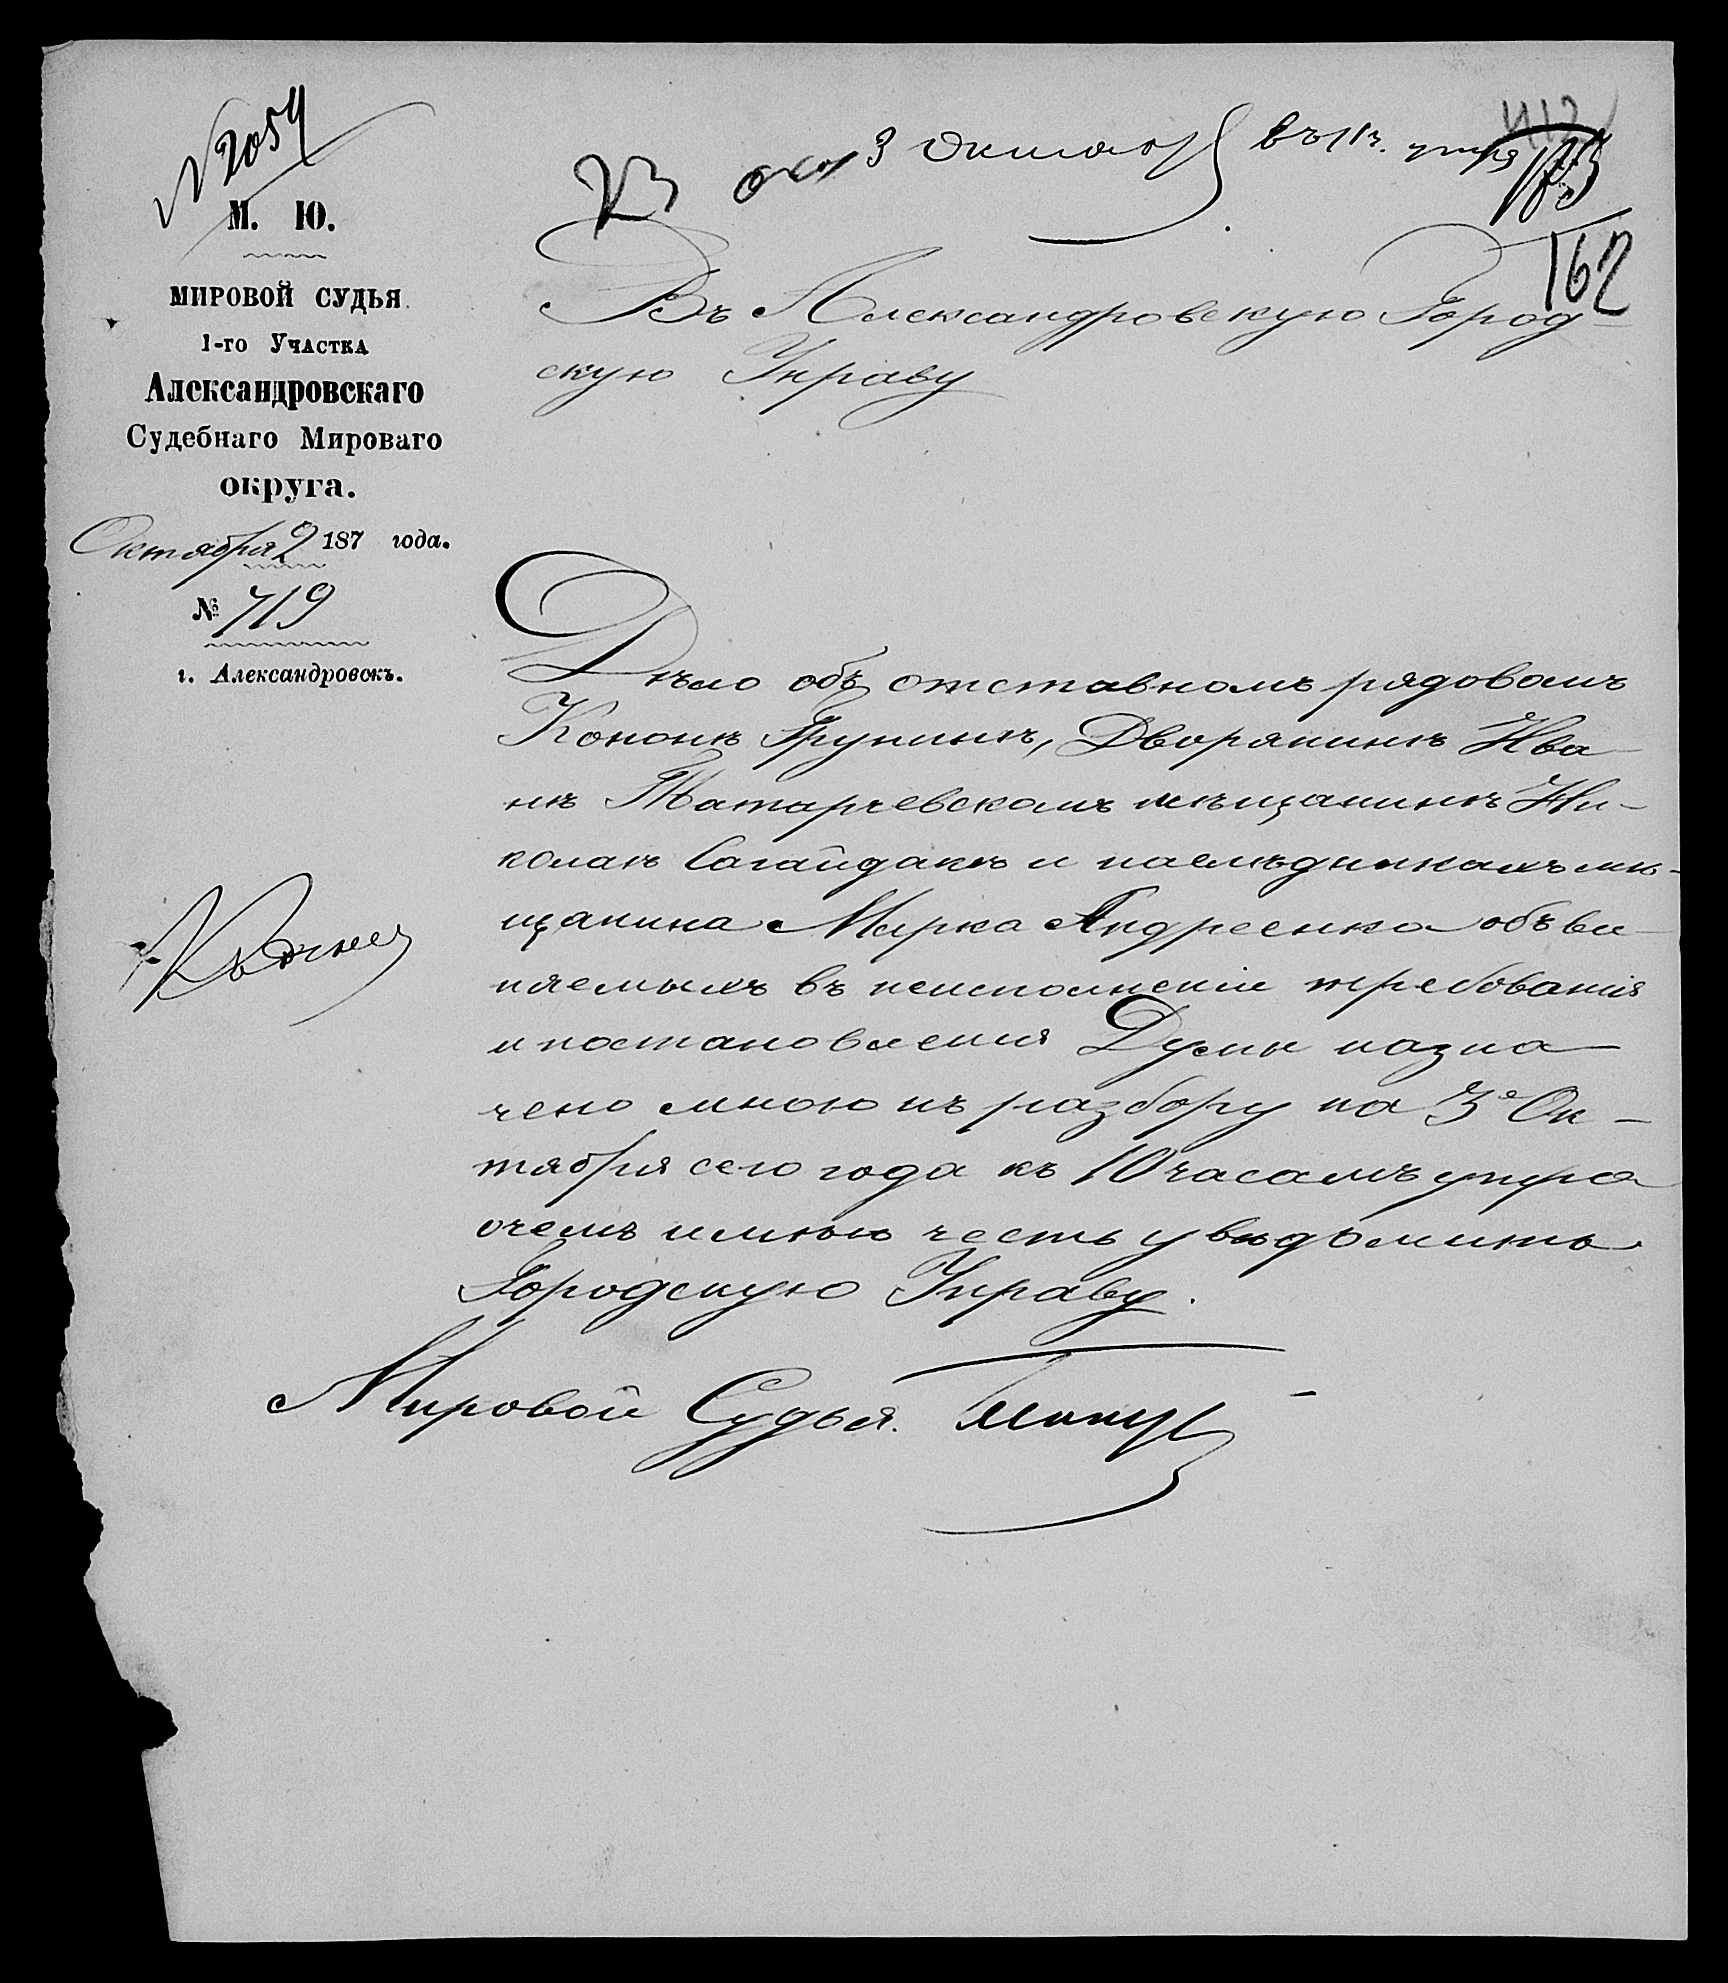 № 2054
3 октяб въ 11 ч. утра
162
М. Ю.
МИРОВОЙ СУДЬЯ
1-го Участка
Александровскаго
Судебнаго Мироваго
округа.
Октября 2 187 года.
№ 719
г. Александровскъ.
Въ Александровскую Город-
скую Управу
Дѣло объ отставномъ рядовомъ
Кононѣ Грунинѣ, Дворянинѣ Ива
нѣ Татарчевскомъ мѣщанинѣ Ни-
колаѣ Сагайдакѣ и наслѣдникахъ мѣ-
щанина Марка Андреенка обвви-
няемыхъ въ неисполненіи требованія
и постановленія Думы назна
чено мною къ разбору на 3е Ок-
тября сего года къ 10 часамъ утра
очемъ имѣю честь увѣдомить
Городскую Управу.
Мировой Судья.